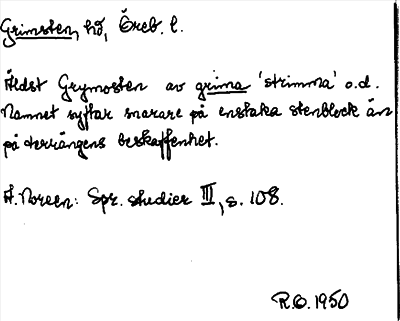 Grimsten, hd, Öreb. l.
Äldst Grymosten av grima 'strimma' o.d.
Namnet syftar snarare på enstaka stenblock än
på terrängens beskaffenhet.
A. Noreen: Spr. studier III, s. 108.
R.O. 1950